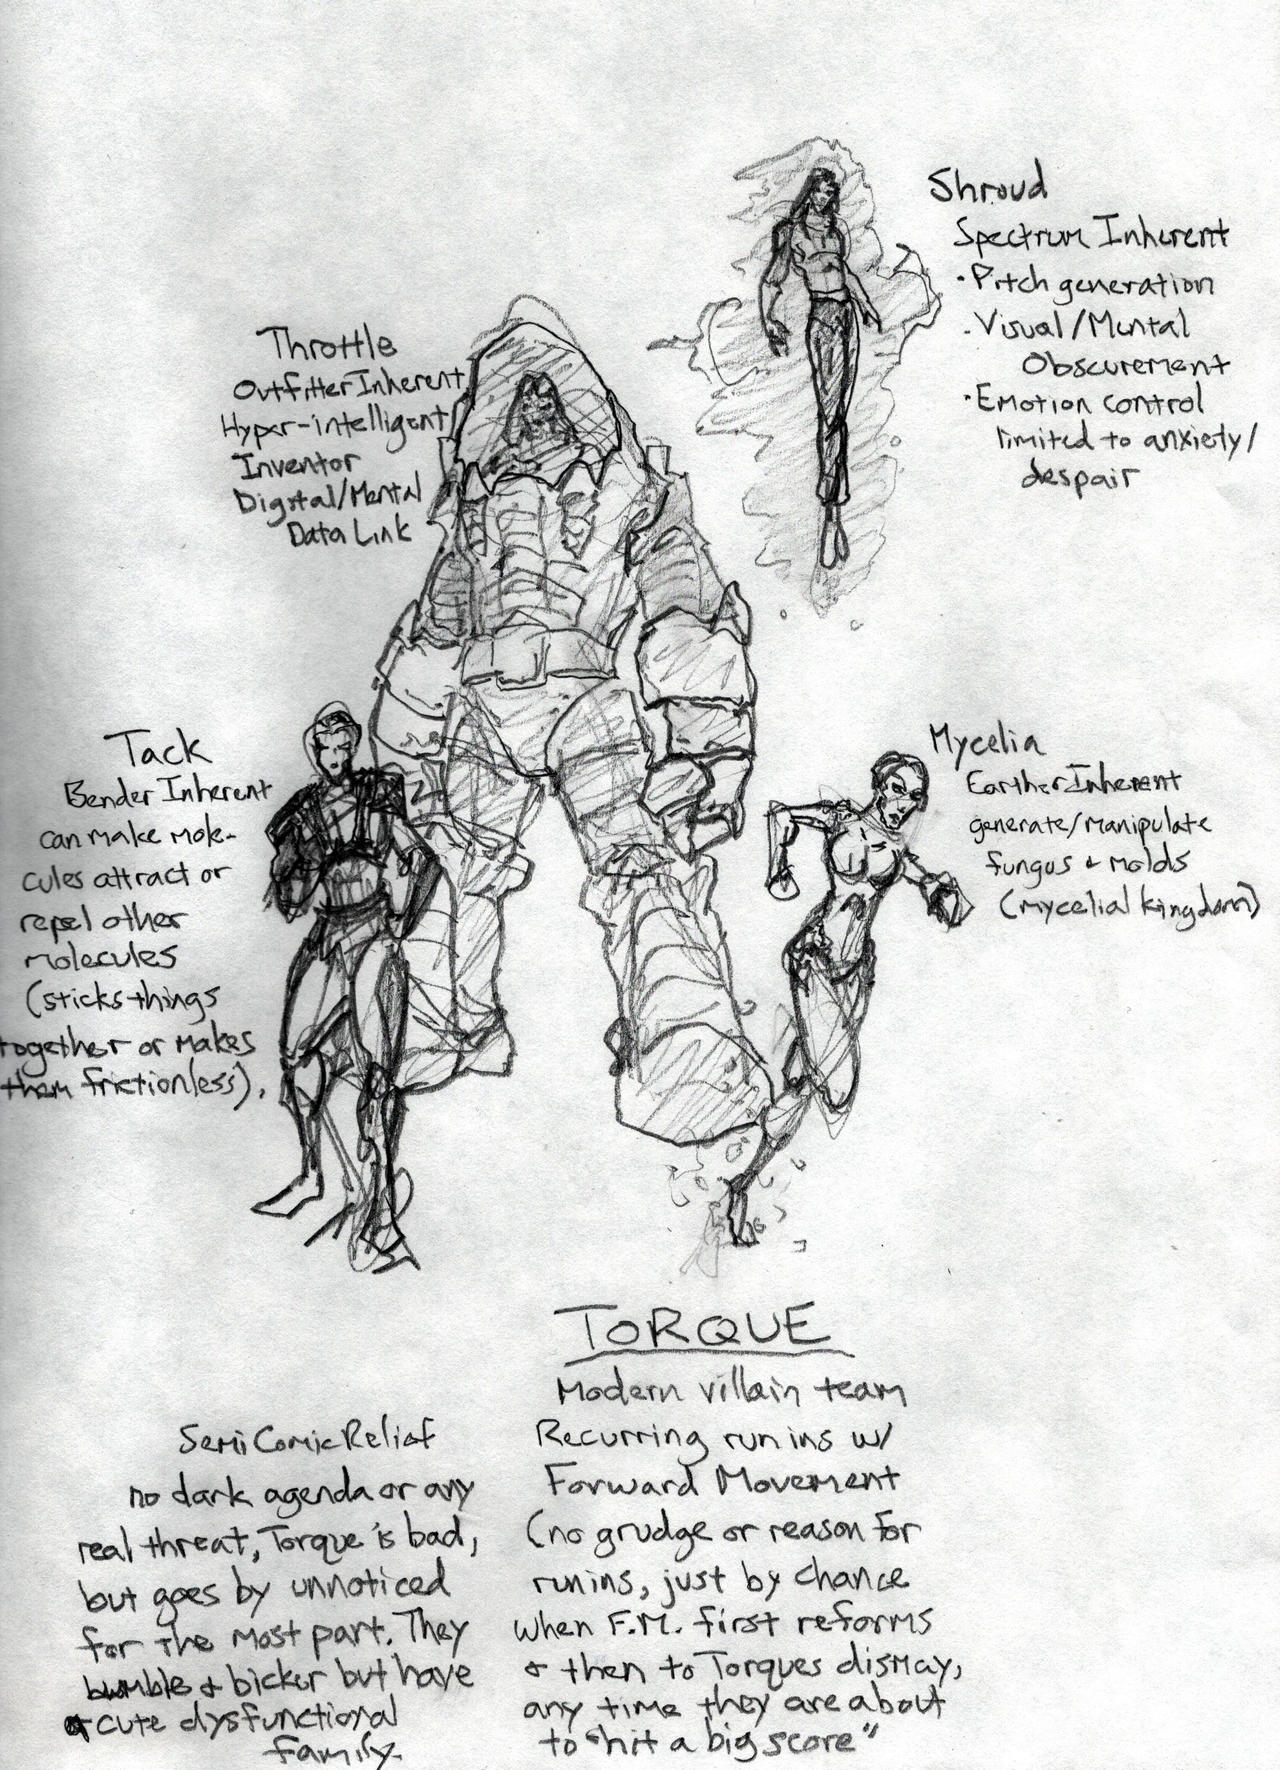 Shroud
Spectrum Inherent
· Pitch generation
· Visual/Mental
Obscurement
· Emotion control
limited to anxiety/
despair
Throttle
Outfitter Inherent
Hyper-intelligent
Inventor
Digital/Mental
Data Link
Tack
Bender Inherent
can make mole-
cules attract or
repel other
molecules
(sticks things
together or makes
them frictionless).
Mycelia
Earther Inherent
generate/manipulate
fungus & molds
(mycelial kingdom)
TORQUE
Modern villain team
Recurring run ins w/
Forward Movement
(no grudge or reason for
run ins, just by chance
when F.M. first reforms
& then to Torques dismay,
any time they are about
to "hit a big score"
Semi Comic Relief
no dark agenda or any
real threat, Torque is bad,
but goes by unnoticed
for the most part. They
bumble & bicker but have
a cute dysfunctional
family.